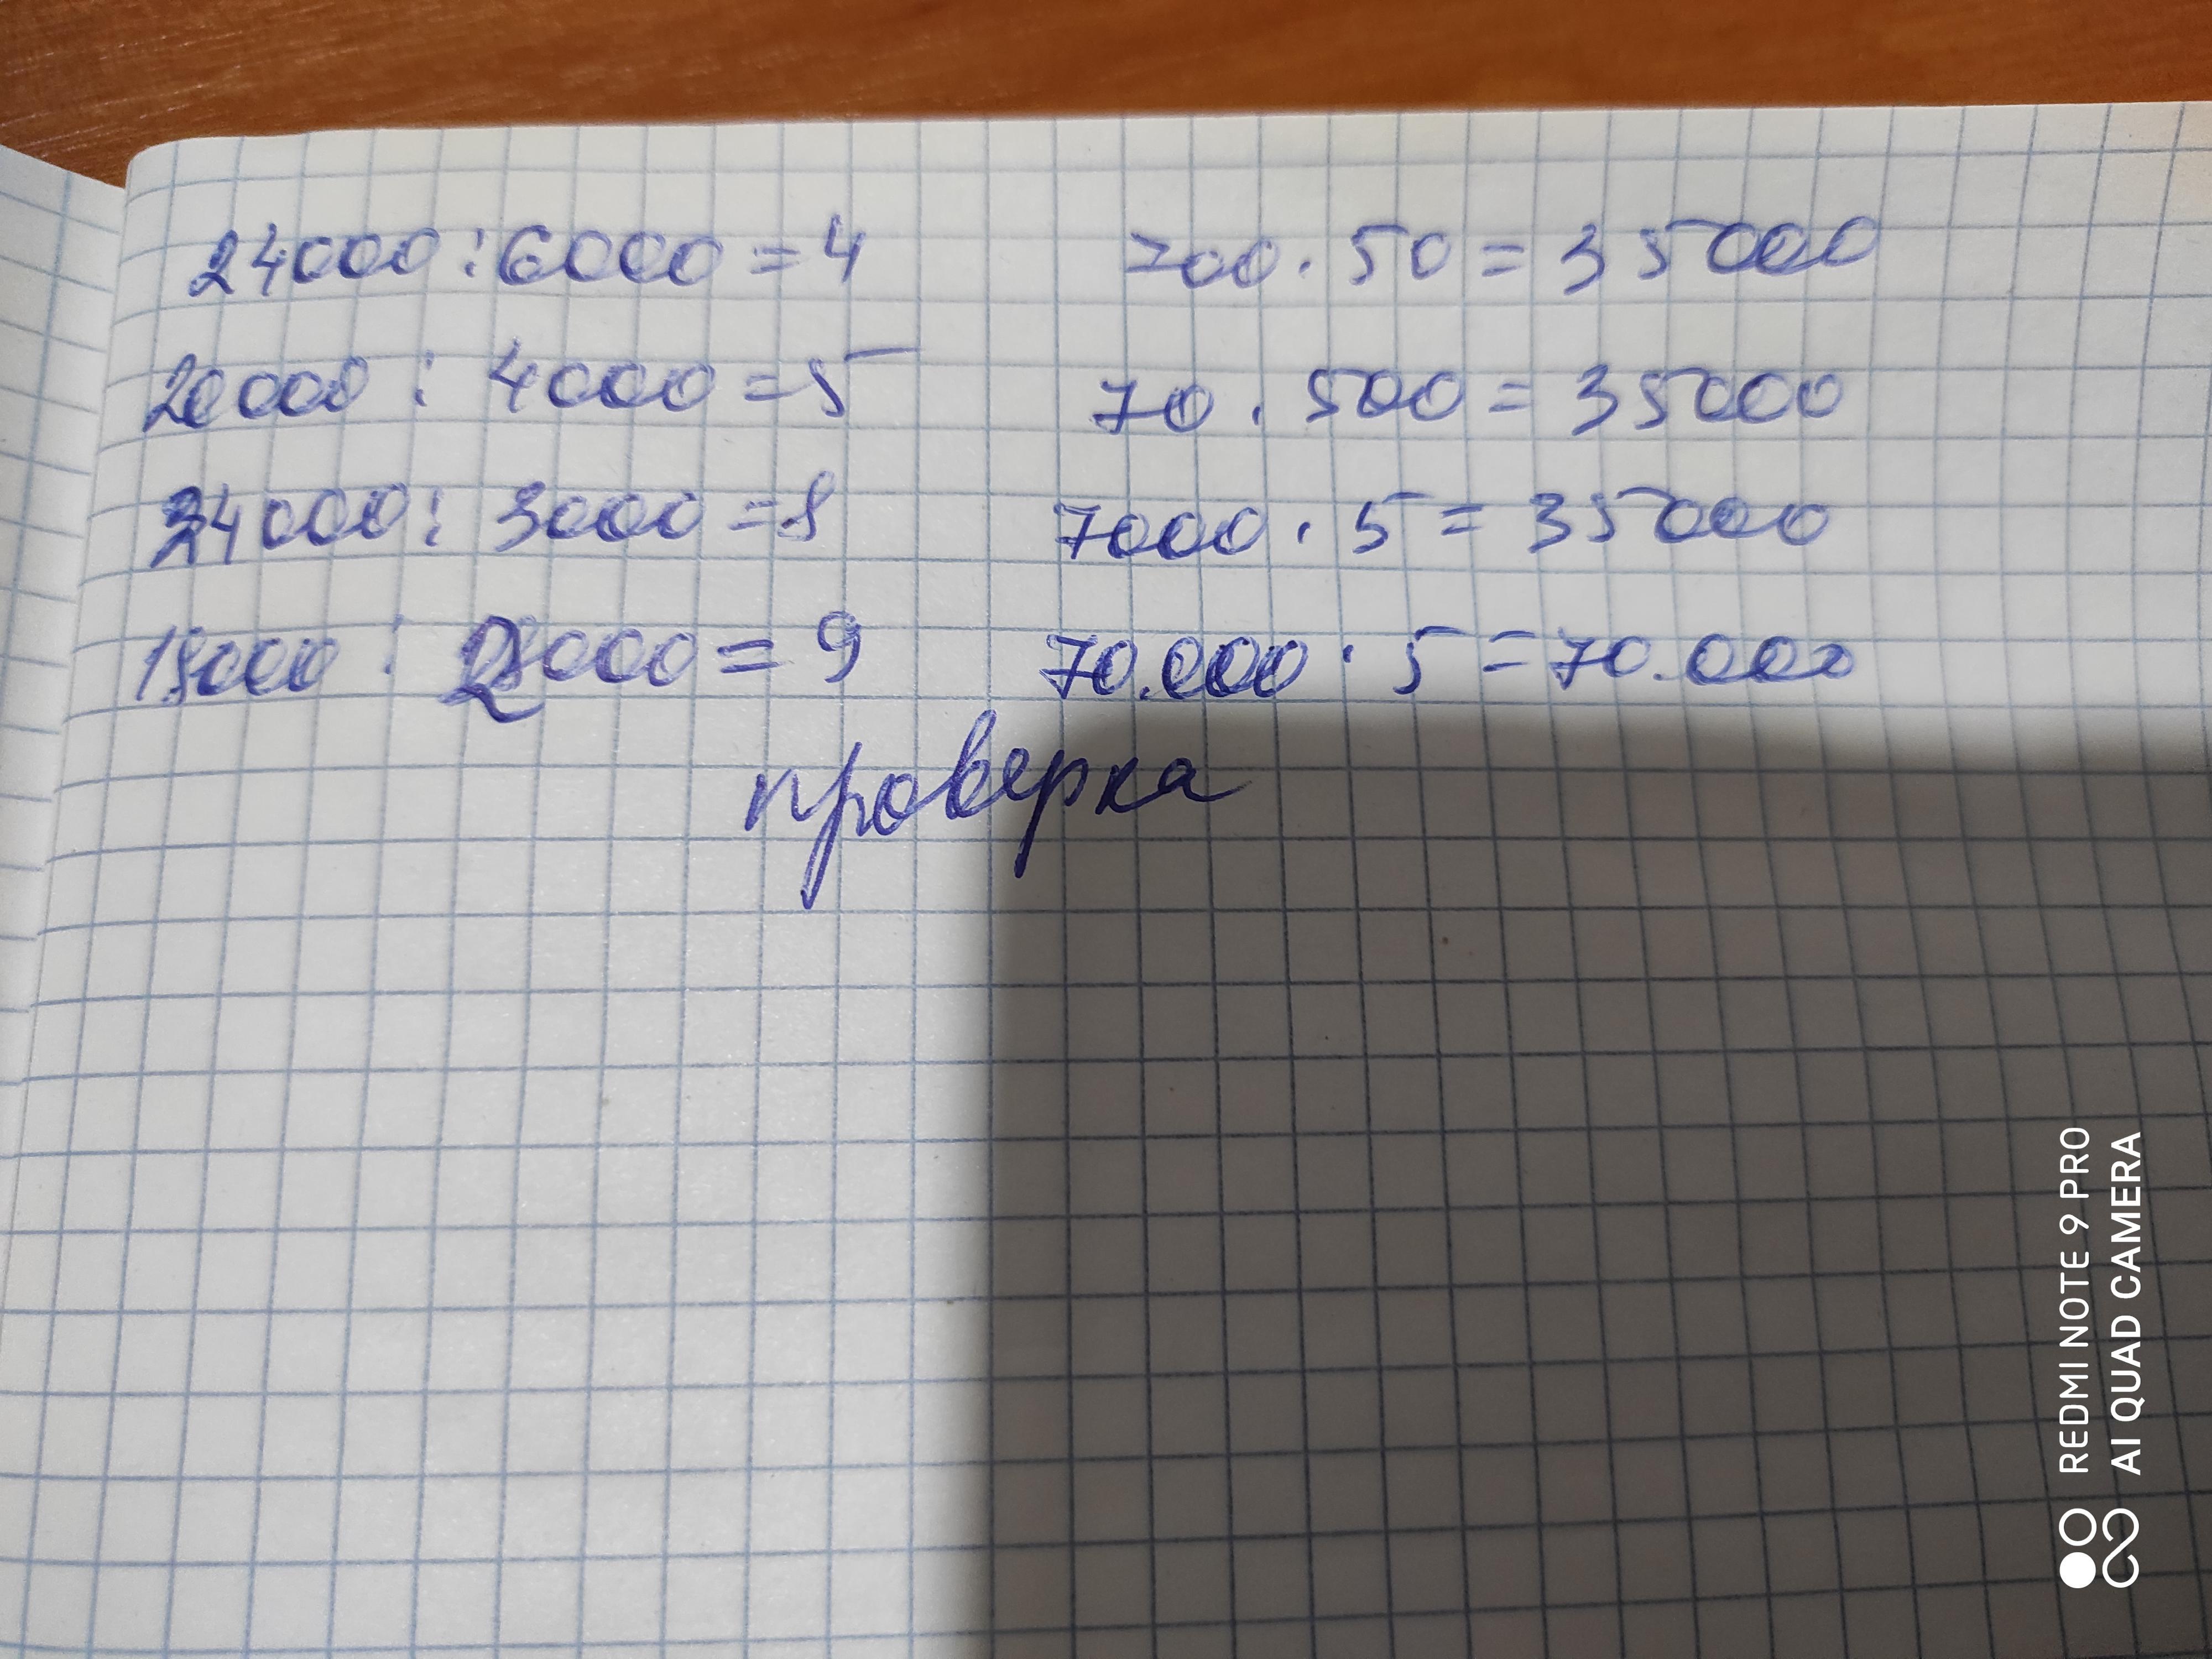 24000 : 6000 = 4 700 · 50 = 35000
20000 : 4000 = 5 70 · 500 = 35000
24000 : 3000 = 8 7000 · 5 = 35000
18000 : 2000 = 9 70.000 · 5 = 70.000
проверка
REDMI NOTE 9 PRO
AI QUAD CAMERA